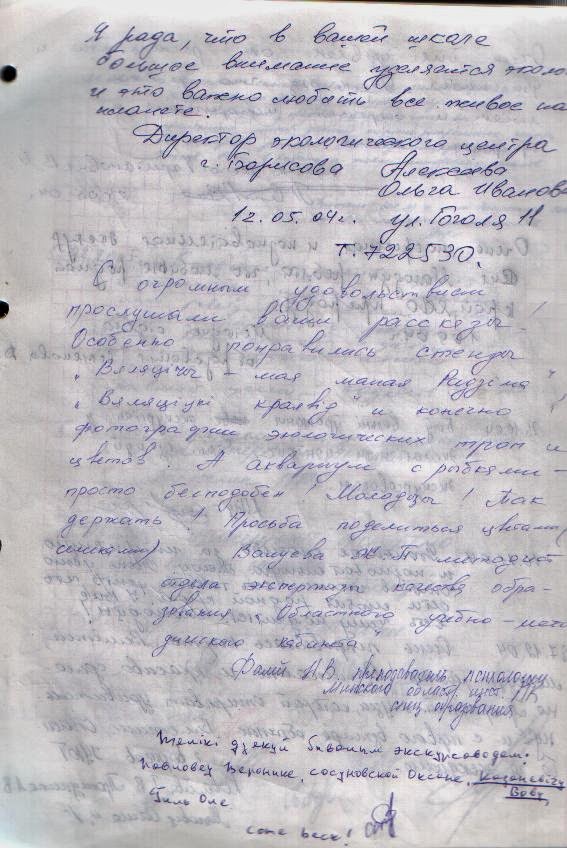 Я рада, что в вашей школе
большое внимание уделяется эколо
и это важно любить все живое на
планете.
Директор экологического центра
г. Борисова Алексеева
Ольга Иванов
12.05.04г. ул. Гоголя
т. 722530.
С огромным удовольствием
прослушали ваши рассказы!
Особенно понравились стенды
„Вяляцічы – мая малая Радзіма",
„Вяляцікі краявід" и конечно
фотографии экологических троп и
цветов. А аквариум с рыбками –
просто бесподобен! Молодцы! Так
держать! Просьба поделиться цветами
Валуева Ж.П. методист
отдела экспертизы качества обра-
зования Областного учебно-мето
дического кабинета"
А.В. преподаватель психологии
Минского област. инст. ПК
спец. образования
дзякуй экскурсоводам:
Веронике, Сосуновской Оксане, Казакевичу
Вове,
Гиль Оле
come back!